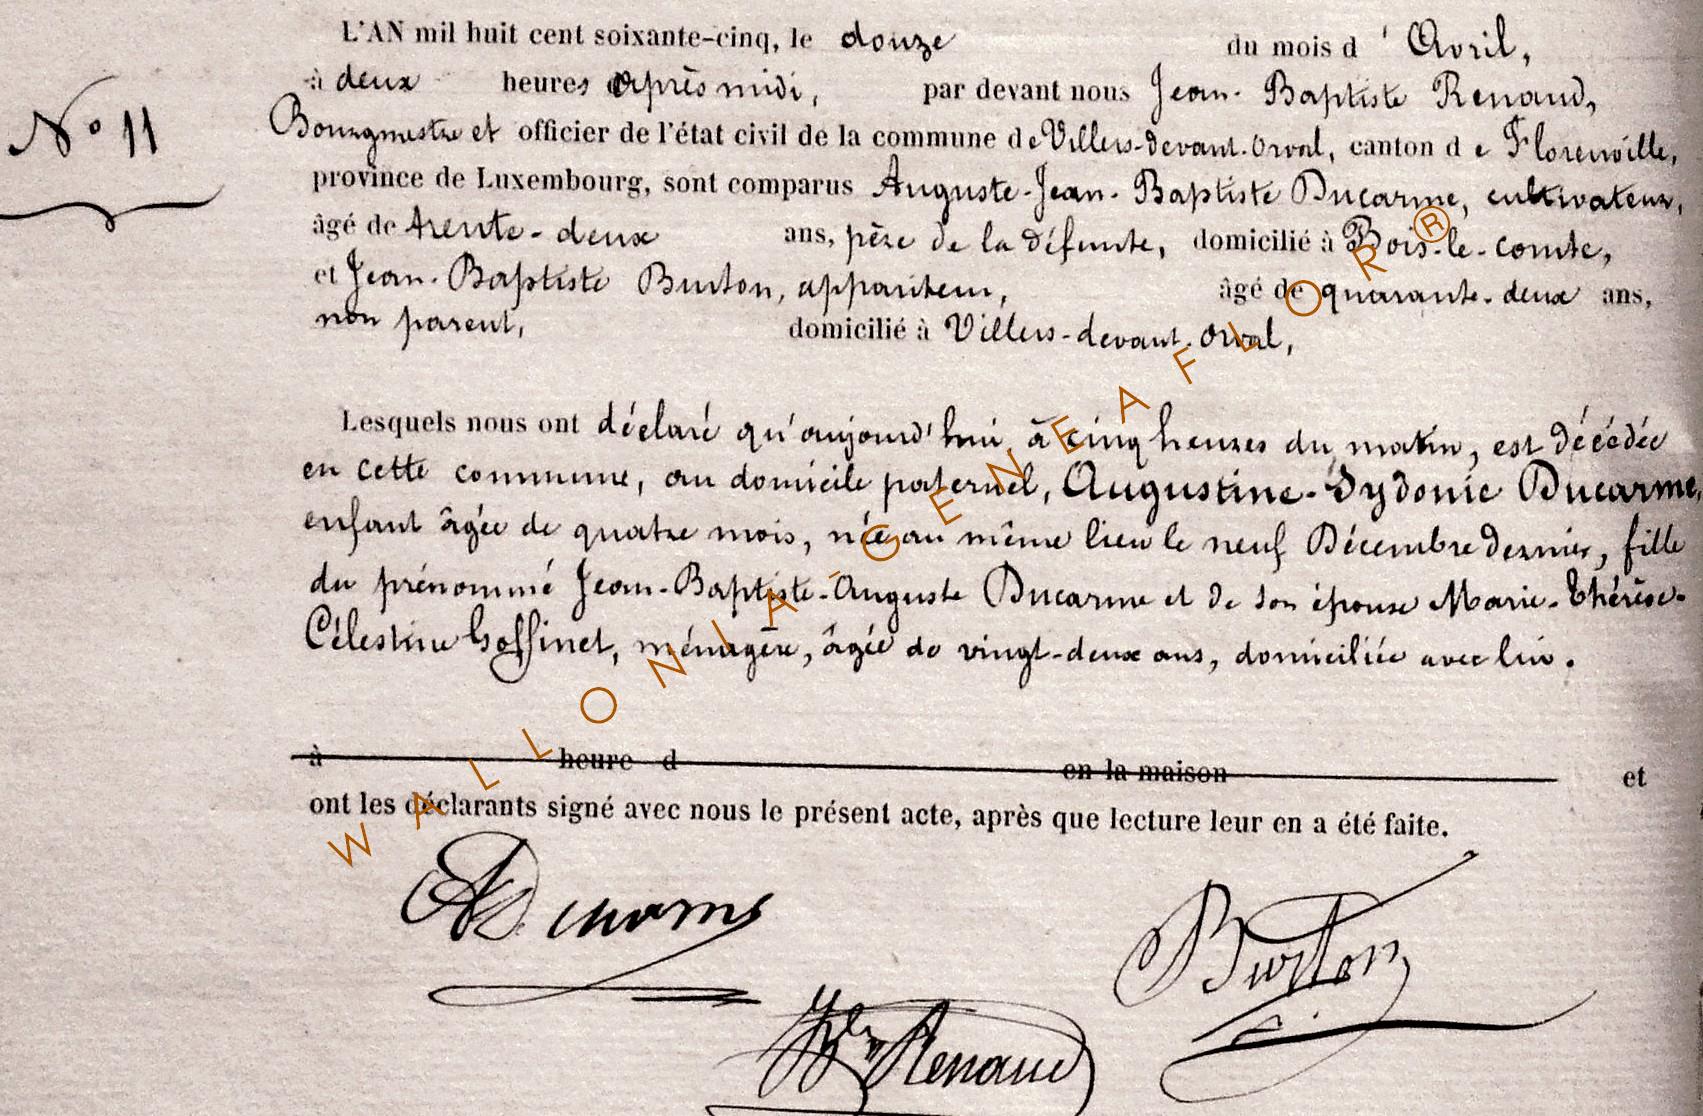 L'AN mil huit cent soixante-cinq, le douze du mois d'Avril,
à deux heures après midi, par devant nous Jean-Baptiste Renaud,
N° 11
Bourgmestre et officier de l'état civil de la commune de Villers-devant-Orval, canton de Florenville,
province de Luxembourg, sont comparus Auguste-Jean-Baptiste Ducarme, cultivateur,
âgé de trente-deux ans, père de la défunte, domicilié à Bois-le-comte,
et Jean-Baptiste Burton, appariteur, âgé de quarante-deux ans,
non parent, domicilié à Villers-devant-Orval,
Lesquels nous ont déclaré qu'aujourd'hui, à cinq heures du matin, est décédée
en cette commune, au domicile paternel, Augustine-Sydonie Ducarme,
enfant âgée de quatre mois, née au même lieu le neuf Décembre dernier, fille
du prénommé Jean-Baptiste-Auguste Ducarme et de son épouse Marie-Thérèse-
Célestine Goffinet, ménagère, âgée de vingt-deux ans, domiciliée avec lui.
à heure d en la maison et
ont les déclarants signé avec nous le présent acte, après que lecture leur en a été faite.
ADucarme
Burton
JBte Renaud
WALLONIA-GENEAFLOR®